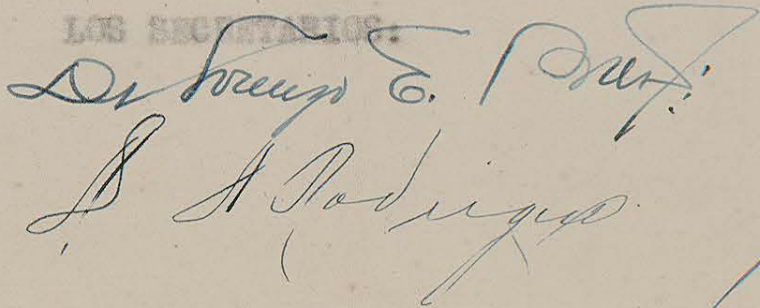 LOS SECRETARIOS:
Dr Lorenzo E.
A Rodriguez